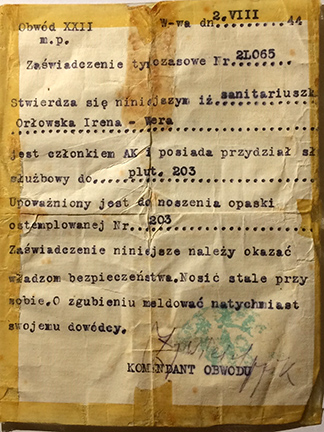 2.VIII
Obwód XXII W-wa dn........44
m.p.
Zaświadczenie tymczasowe Nr. 2L065
Stwierdza się niniejszym iż sanitariuszk
Orłowska Irena - Wera
jest członkiem AK i posiada przydział sł
służbowy do....plut. 203
Upoważniony jest do noszenia opaski
ostemplowanej Nr. 203
Zaświadczenie niniejsze należy okazać
władzom bezpieczeństwa.Nosić stale przy
sobie.O zgubieniu meldować natychmiast
swojemu dowódcy.
KOMENDANT OBWODU